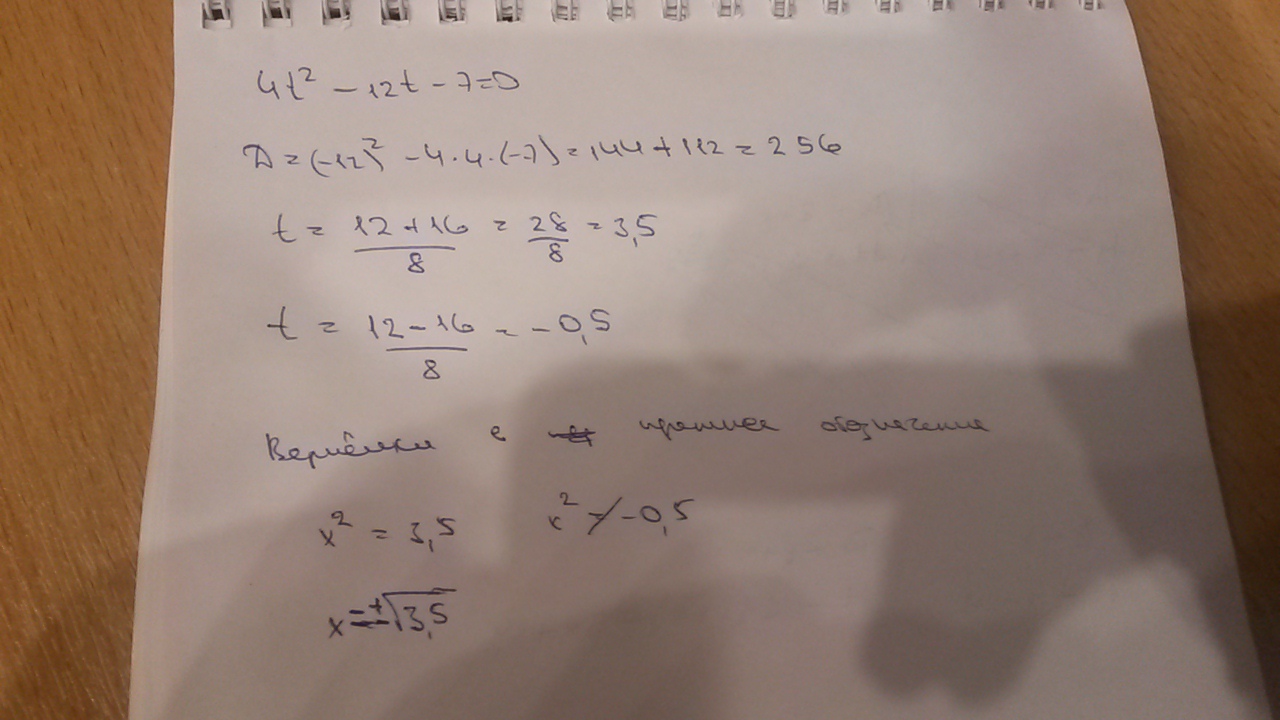 4t² - 12t - 7=0
D = (-12)² - 4·4·(-7) = 144 + 112 = 256
t = (12+16)/8 = 28/8 = 3,5
t = (12-16)/8 = -0,5
Вернёмся в прошлое обозначение
x² = 3,5 x² ≠ -0,5
x = ±√3,5